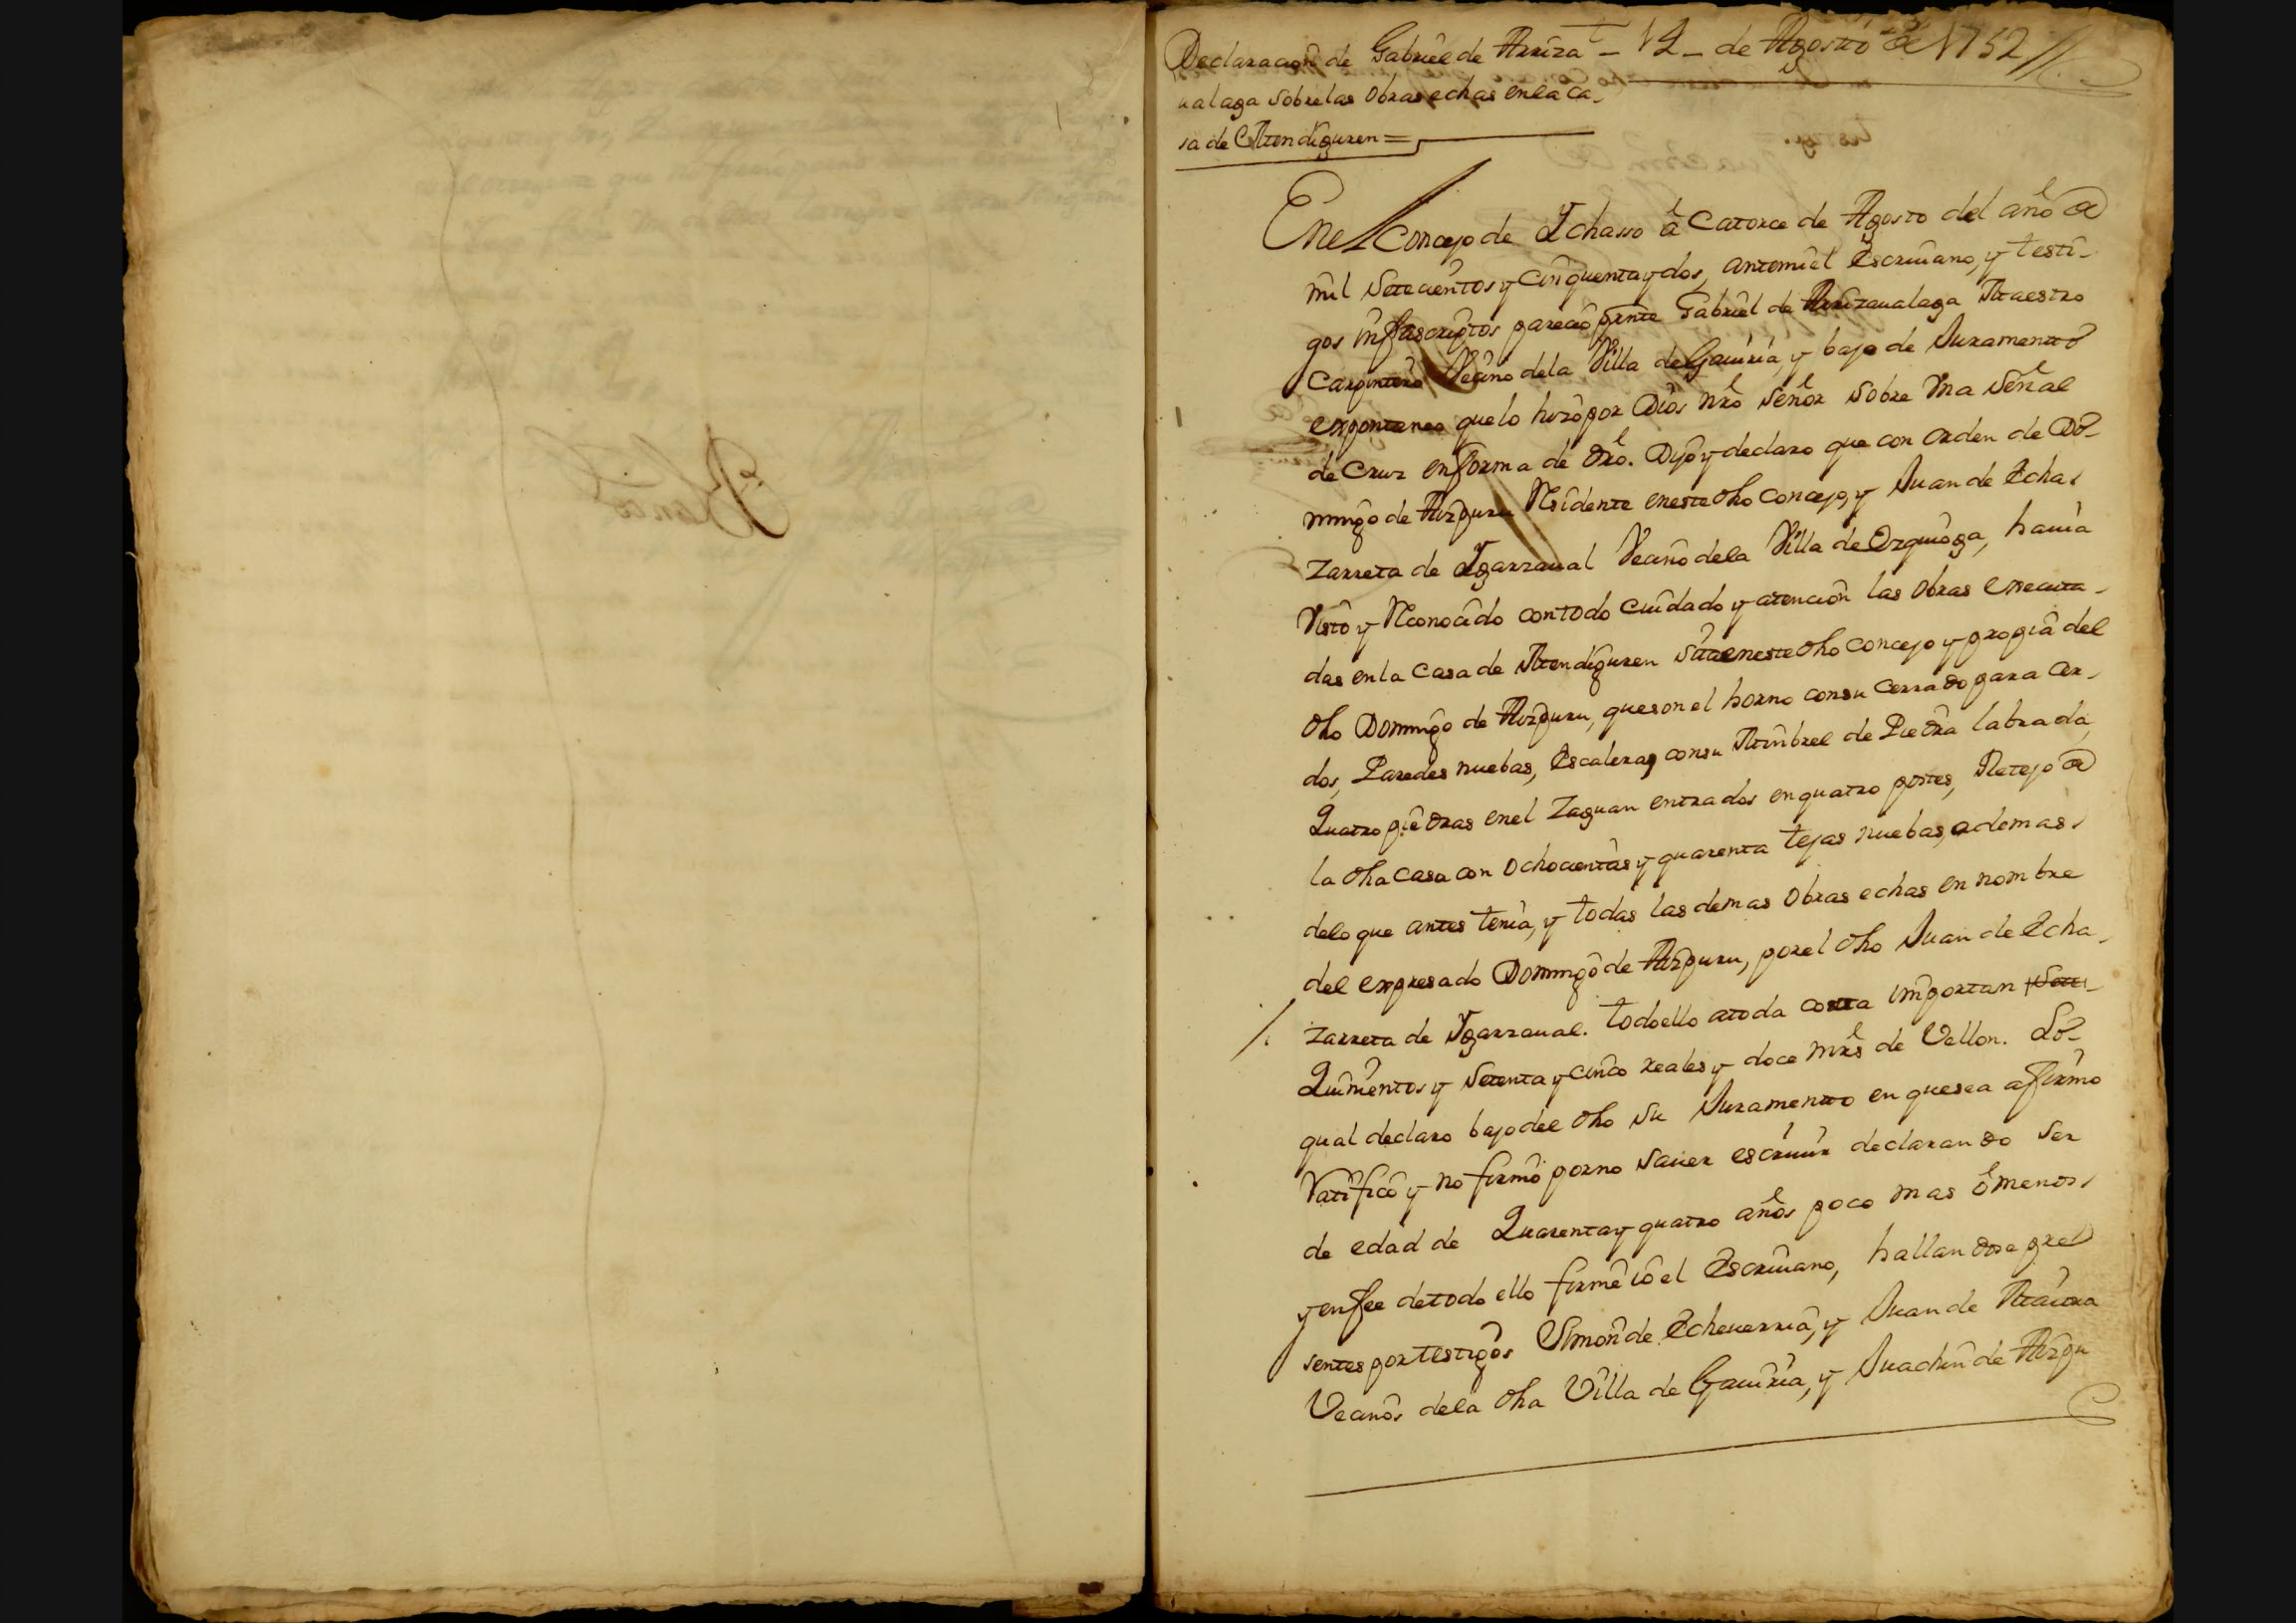 Blanco
Declaracion de Gabriel de Arriza
ualaga sobre las obras echas en la ca-
sa de Mendiguren=
12 de Agosto de 1752
En el Concejo de Ychasso â Catorce de Agosto del año de
mil setecientos y cinquenta y dos, antemi el Escriuano, y testi-
gos infrascriptos parecio preste Gabriel de Arrizaualaga Maestro
Carpintero Vecino dela Villa de Gauiria, y bajo de Juramento
expontaneo que lo hizo por Dios nro señor sobre Vna señal
de Cruz en forma de dro. Dijo y declaro que con orden de Do-
mingo de Aizpuru Residente en este dho Concejo, y Juan de Echa
zarreta de Ygarzaual Vecino dela Villa de Ezquioga, hauia
Visto y Reconocido con todo cuidado y atencion las obras executa-
das en la Casa de Mendiguren sita en este dho Concejo y propia del
dho Domingo de Aizpuru, que son el horno con su cerrado para cer-
dos, Paredes nuebas, Escaleras con su Mimbrel de Piedra labrada,
Quatro piedras en el Zaguan entrados en quatro postes, Retejo de
la dha casa con ochocientas y quarenta tejas nuebas, ademas
delo que antes tenia, y todas las demas obras echas en nombre
del expresado Domingo de Aizpuru, por el dho Juan de Echa-
zarreta de Ygarzaual. todo ello atoda costa importan
Quinientos y setenta y cinco reales y doce mrs de Vellon. Lo
qual declaro bajo del dho su Juramento en que sea afirmo
Ratifico y no firmo por no sauer escriuir declarando ser
de edad de Quarenta y quatro años poco mas ô menos
y en fee de todo ello firme io el Escriuano, hallandose pre
sentes por testigos Simon de Echeuerria, y Juan de
Vecinos dela dha Villa de Gauiria, y Juachin de Aizpu